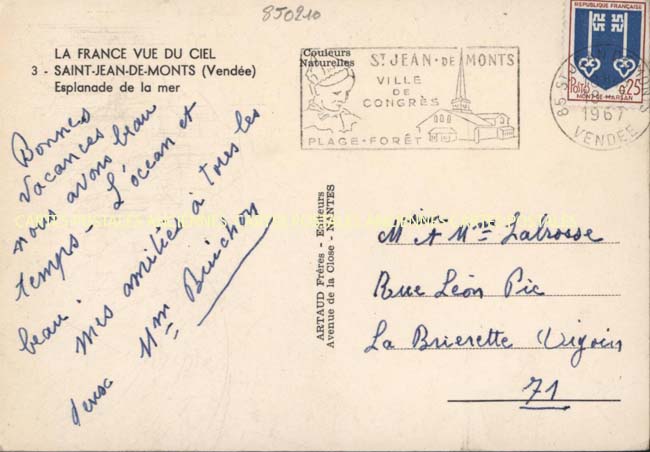 850210
LA FRANCE VUE DU CIEL
3 - SAINT-JEAN-DE-MONTS (Vendée)
Esplanade de la mer
Bonnes
vacances
nous avons beau
temps - L'océan et
beau.
Mes amitiés à tous les
deux
Mme Bruchon
ARTAUD Frères - Editeurs
Avenue de la Close - NANTES
Couleurs
Naturelles
ST JEAN-DE MONTS
VILLE
DE
CONGRÈS
PLAGE-FORÊT
REPUBLIQUE FRANÇAISE
Postes
0,25
MONT-DE-MARSAN
85 ST JEAN DE MONTS
1967
VENDÉE
M. et Mme Labrosse
Rue Léon Pic
La Brierette Vigoin
71